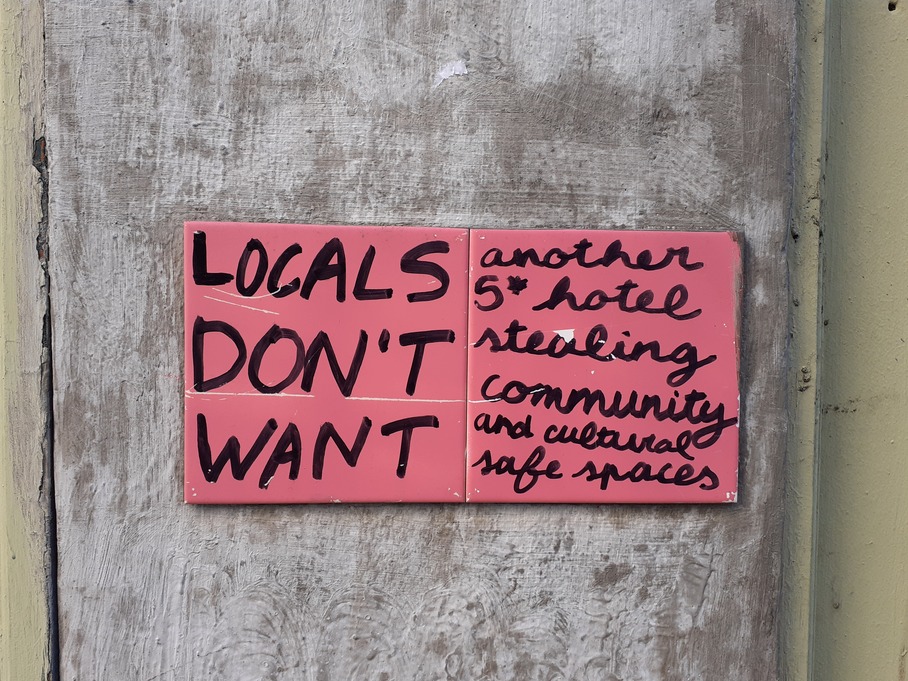 LOCALS
DON'T
WANT
another
5* hotel
stealing
community
and cultural
safe spaces